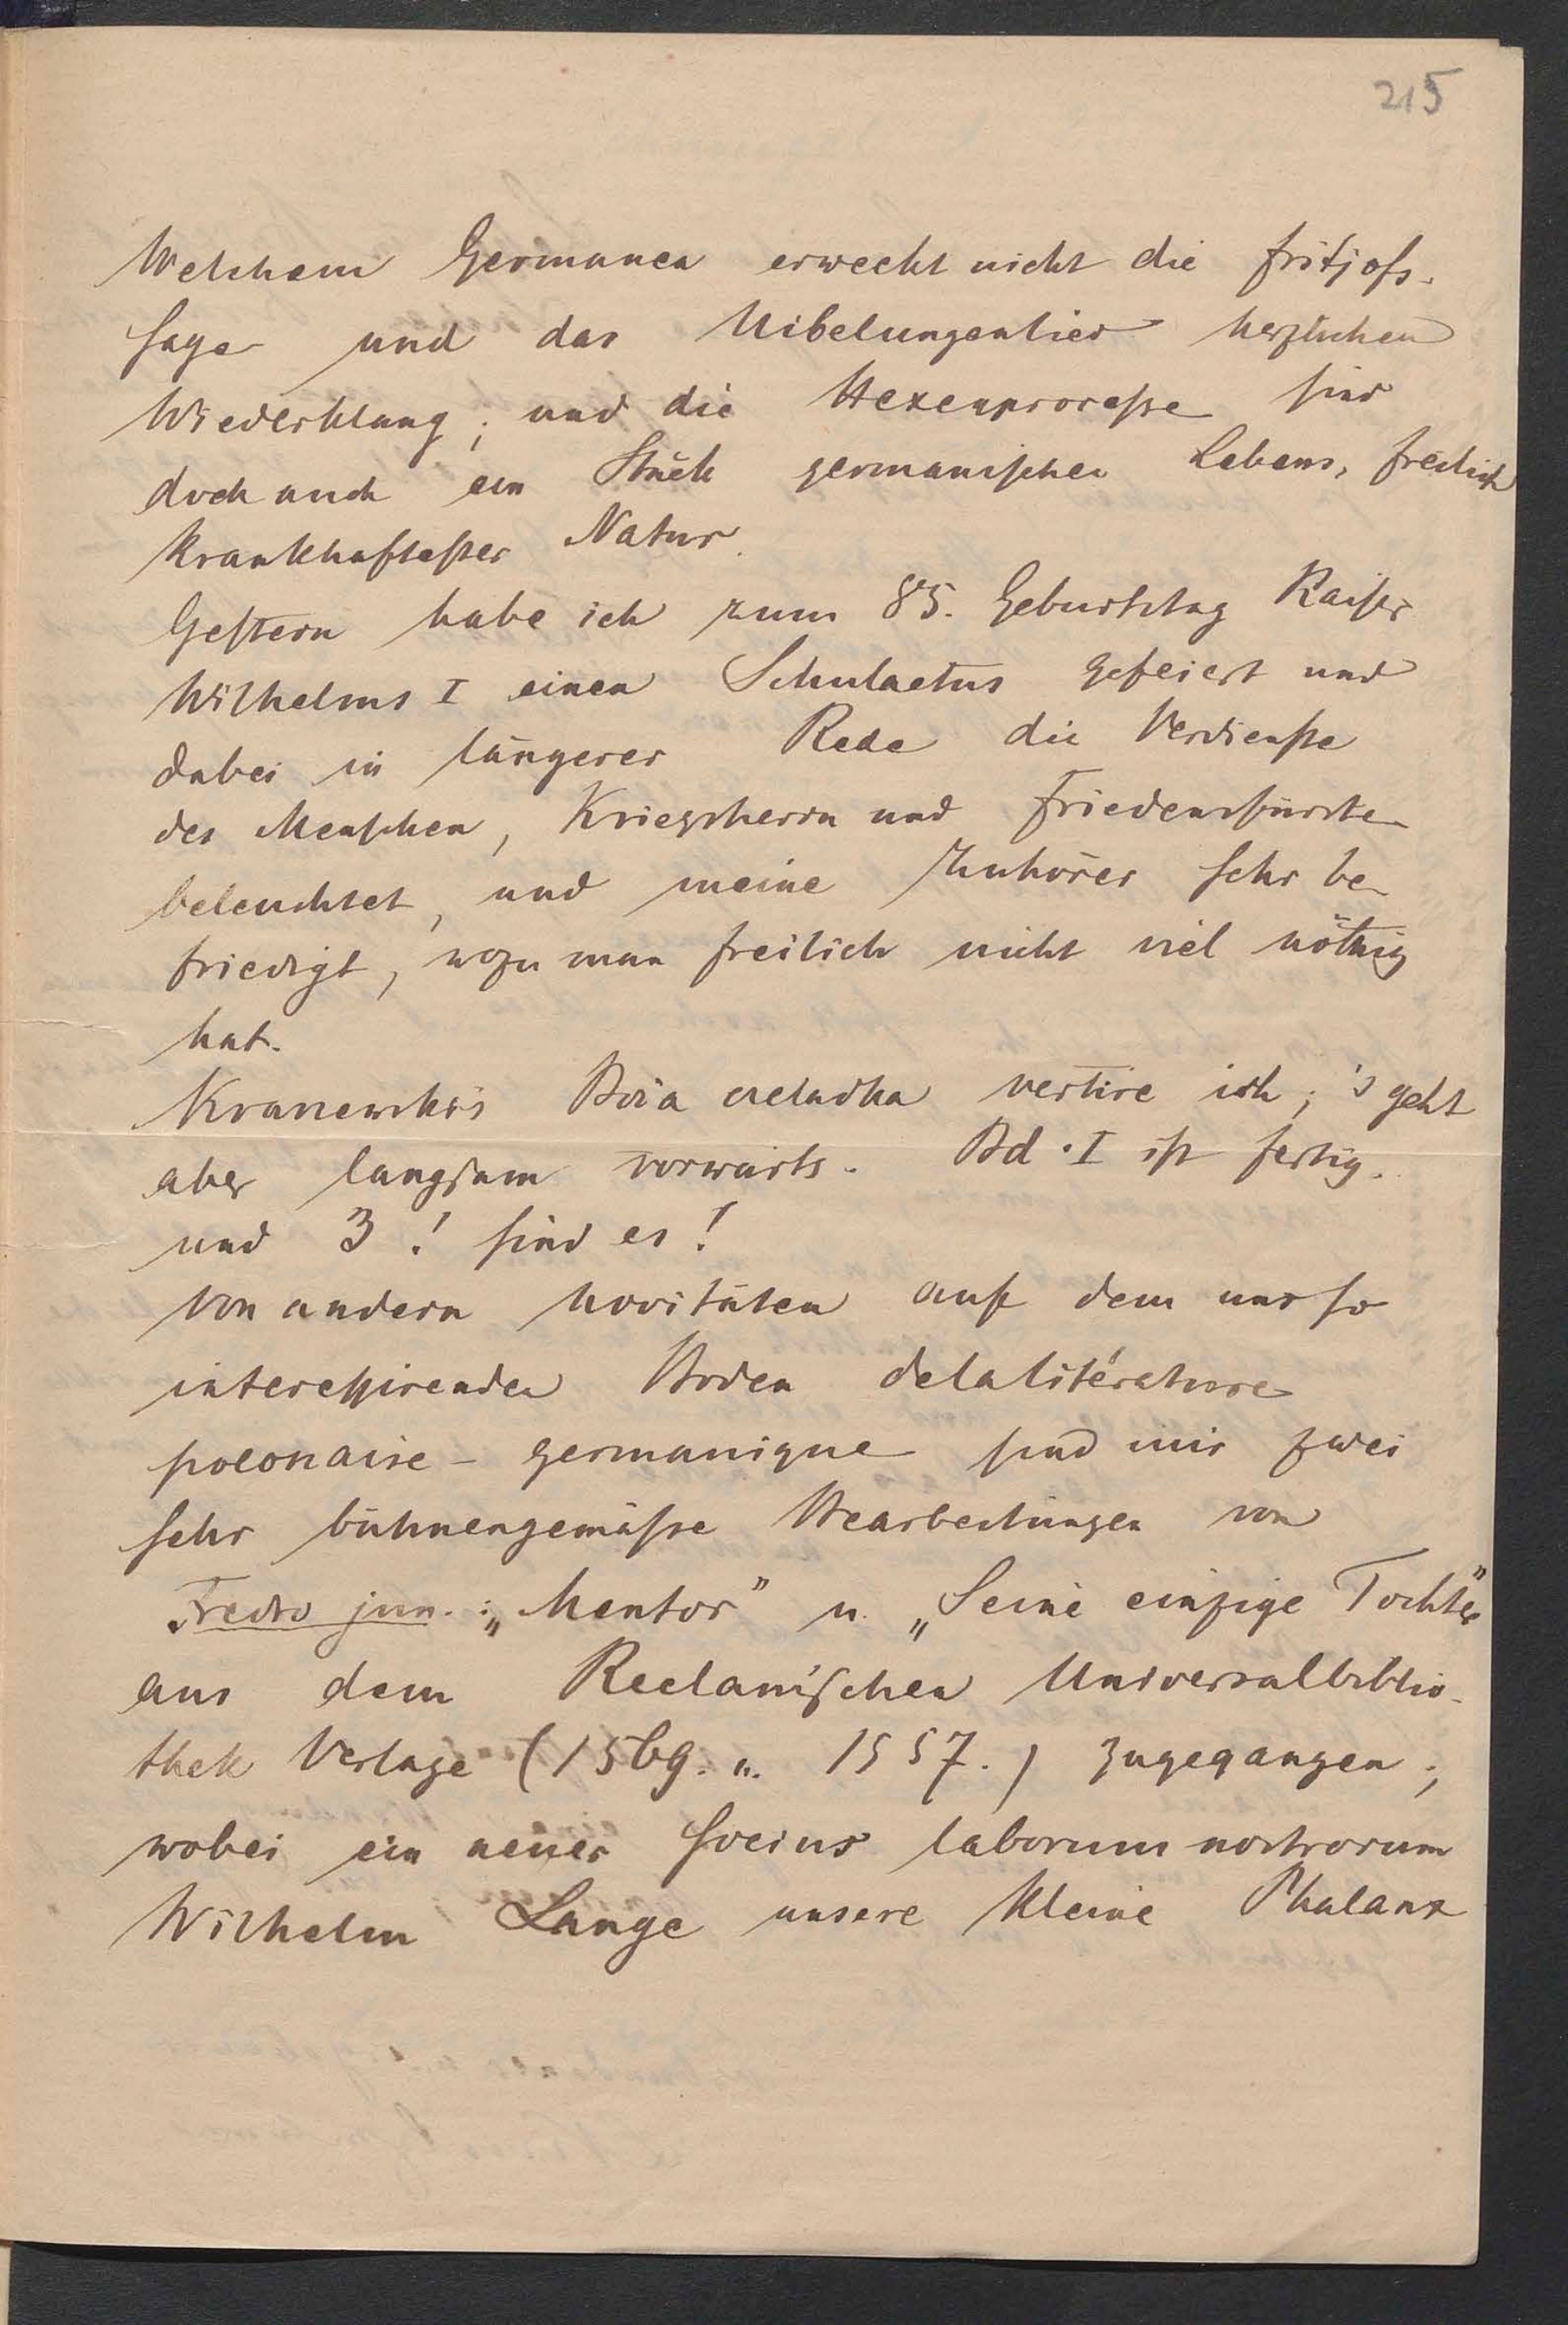 215
Welchem Germanen erweckt nicht die Fritjofs-
sage und das Nibelungenlied herzlichen
Wiederklang; und die Hexenprocesse sind
doch auch ein Stück germanischen Lebens, freilich
krankhaftester Natur.
Gestern habe ich zum 85. Geburtstag Kaiser
Wilhelms I einen Schulactus gefeiert und
dabei in längerer Rede die Verdienste
des Menschen, Kriegsherrn und Friedensfürsten
beleuchtet, und meine Zuhörer sehr be-
friedigt, wozu man freilich nicht viel nöthig
hat.
vertire ich; 's geht
aber langsam vorwärts. Bd. I ist fertig.
und 3! sind es!
Von andern Novitäten auf dem uns so
interessirenden Boden de la litérature
polonaise-germanique sind mir zwei
sehr bühnengemässe Bearbeitungen von
Fredro jun.: „Mentor" u. „Seine einzige Tochter"
aus dem Reclam'schen Universalbiblio-
thek Verlage (1569. u. 1557.) zugegangen;
wobei ein neuer Socius laborum nostrorum
Wilhelm Lange unsere kleine Phalanx